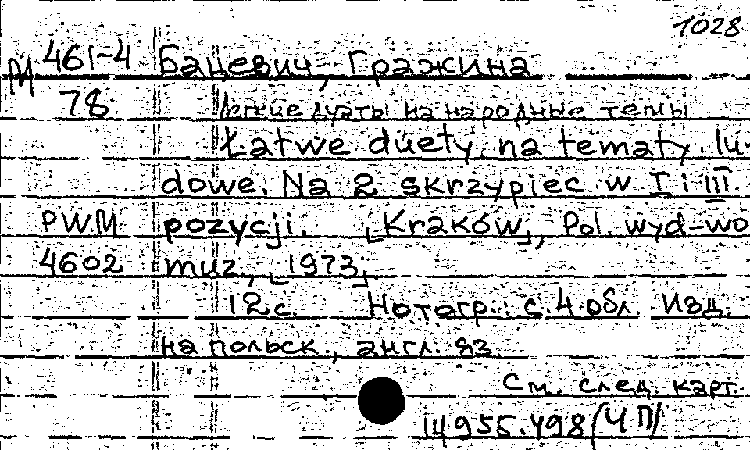 1028
М 461-4 Бацевич, Гражина
78 Легкие дуэты на народные темы
Łatwe duety na tematy lu-
dowe. Na 2 skrzypiec w I i III
PWM pozycji. [Kraków], Pol. wyd-wo
4602 muz., [1973]
12 с. Нотогр.: с. 4 обл. Изд.
на польск., англ. яз.
См. след. карт.
14955.498 (ЧП)